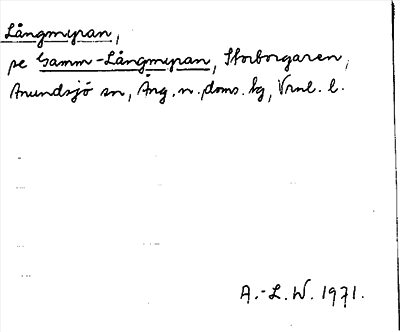 Långmyran,
se Gamm-Långmyran, Storborgaren,
Anundsjö sn, Ång. n. doms. bg, Vrnl. l.
A.-L. W. 1971.